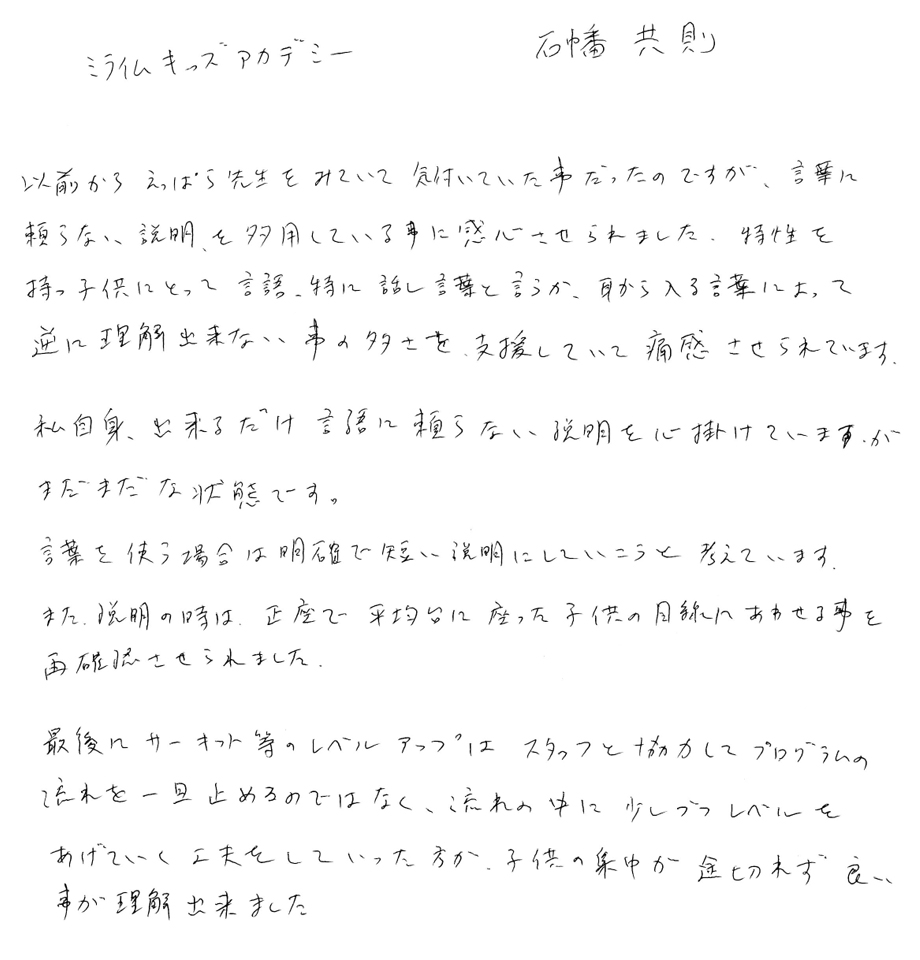 ミライムキッズアカデミー
石幡 共則
以前から えっぱら先生をみていて 気付いていた事だったのですが、言葉に
頼らない、説明、を多用している事に感心させられました。特性を
持つ子供にとって 言語、特に 話し言葉と言うか、耳から入る言葉によって
逆に理解出来ない事の多さを、支援していて痛感させられています。
私自身、出来るだけ言語に頼らない説明を心掛けていますが
まだまだな状態です。
言葉を使う場合は明確で短い説明にしていこうと考えています。
また、説明の時は、正座で平均台に座った子供の目線にあわせる事を
再確認させられました。
最後にサーキット等のレベルアップは スタッフと協力してプログラムの
流れを一旦止めるのではなく、流れの中に少しづつレベルを
あげていく工夫をしていった方が、子供の集中が途切れず良い
事が理解出来ました